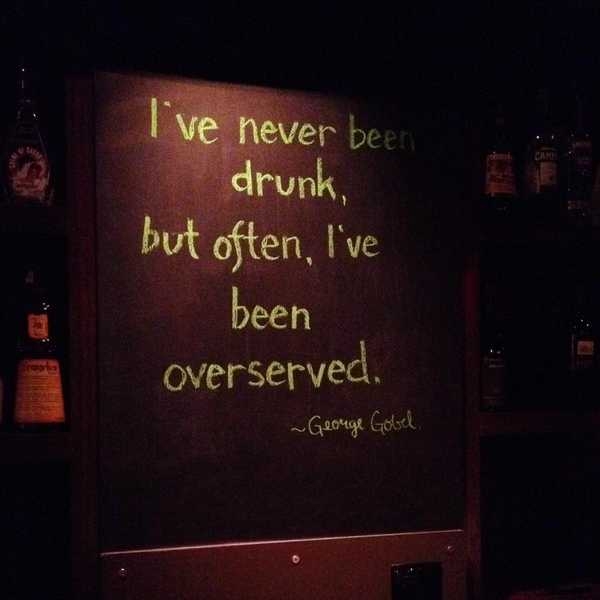 I've never been
drunk,
but often, I've
been
overserved.
~George Gobel.
CAMPARI